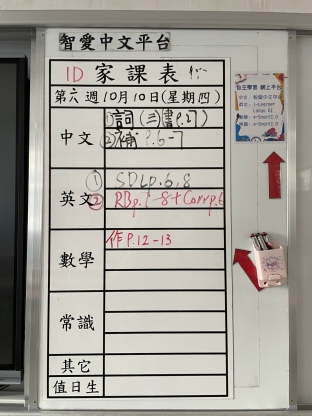 智愛中文平台
1D 家課表
第六週10月10日(星期四)
中文
①詞(三)(書P.27)
②補P.6-7
英文
① SDLp.6,8
② RBp.7-8+Corrp.6
數學
作P.12-13
常識
其它
值日生
自主學習 網上平台